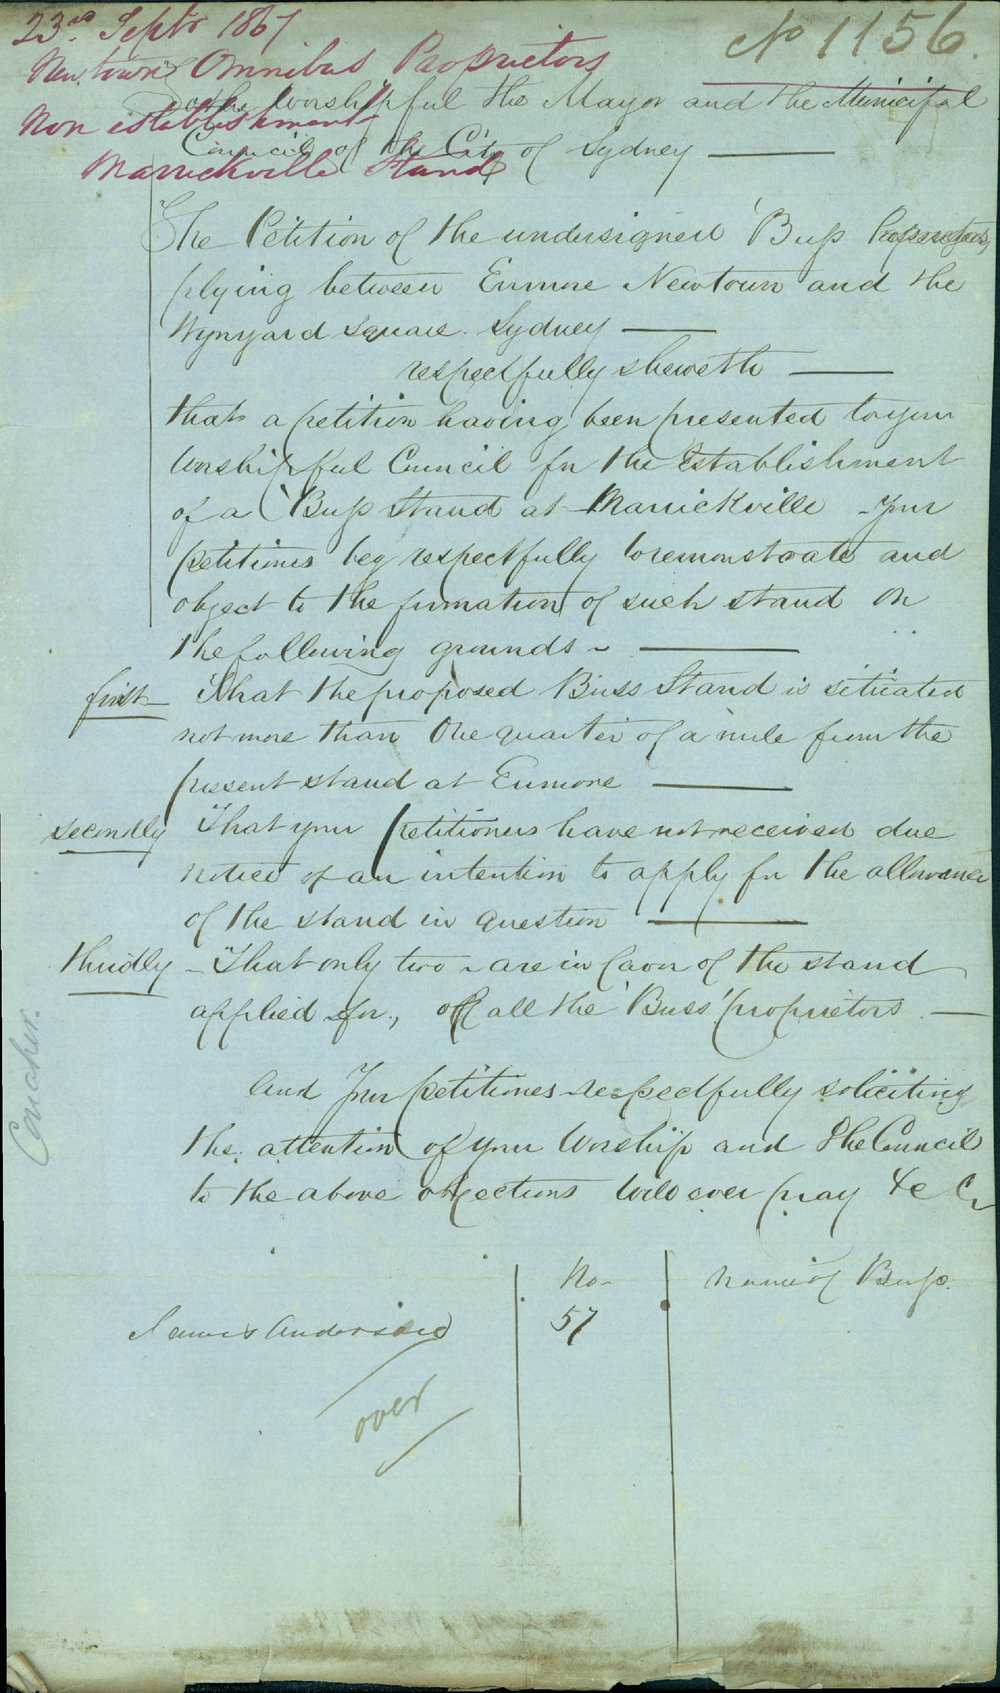 23rd Septr 1867
No 1156.
Newtown Omnibus Proprietors
Non establishment
Marrickville Stand
To the Worshipful the Mayor and the Municipal
Council of the City of Sydney
The Petition of the undersigned 'Buss Proprietors,
plying between Enmore Newtown and the
Wynyard Square. Sydney
respectfully sheweth
that a petition having been presented to your
Worshipful Council for the Establishment
of a 'Buss Stand at Marrickville - Your
petitioners beg respectfully to remonstrate and
object to the formation of such stand on
the following grounds ~
first - That the proposed Buss Stand is situated
not more than One quarter of a mile from the
present stand at Enmore
Secondly That your petitioners have not received due
notice of an intention to apply for the allowance
of the stand in question
thirdly - That only two - are in favor of the stand
applied for, of all the 'Buss' proprietors.
And Your petitioners respectfully soliciting
the attention of your Worship and the Council
to the above objections will ever pray &c &c
Concher.
No- Name of Buss.
James Anderson 57
over